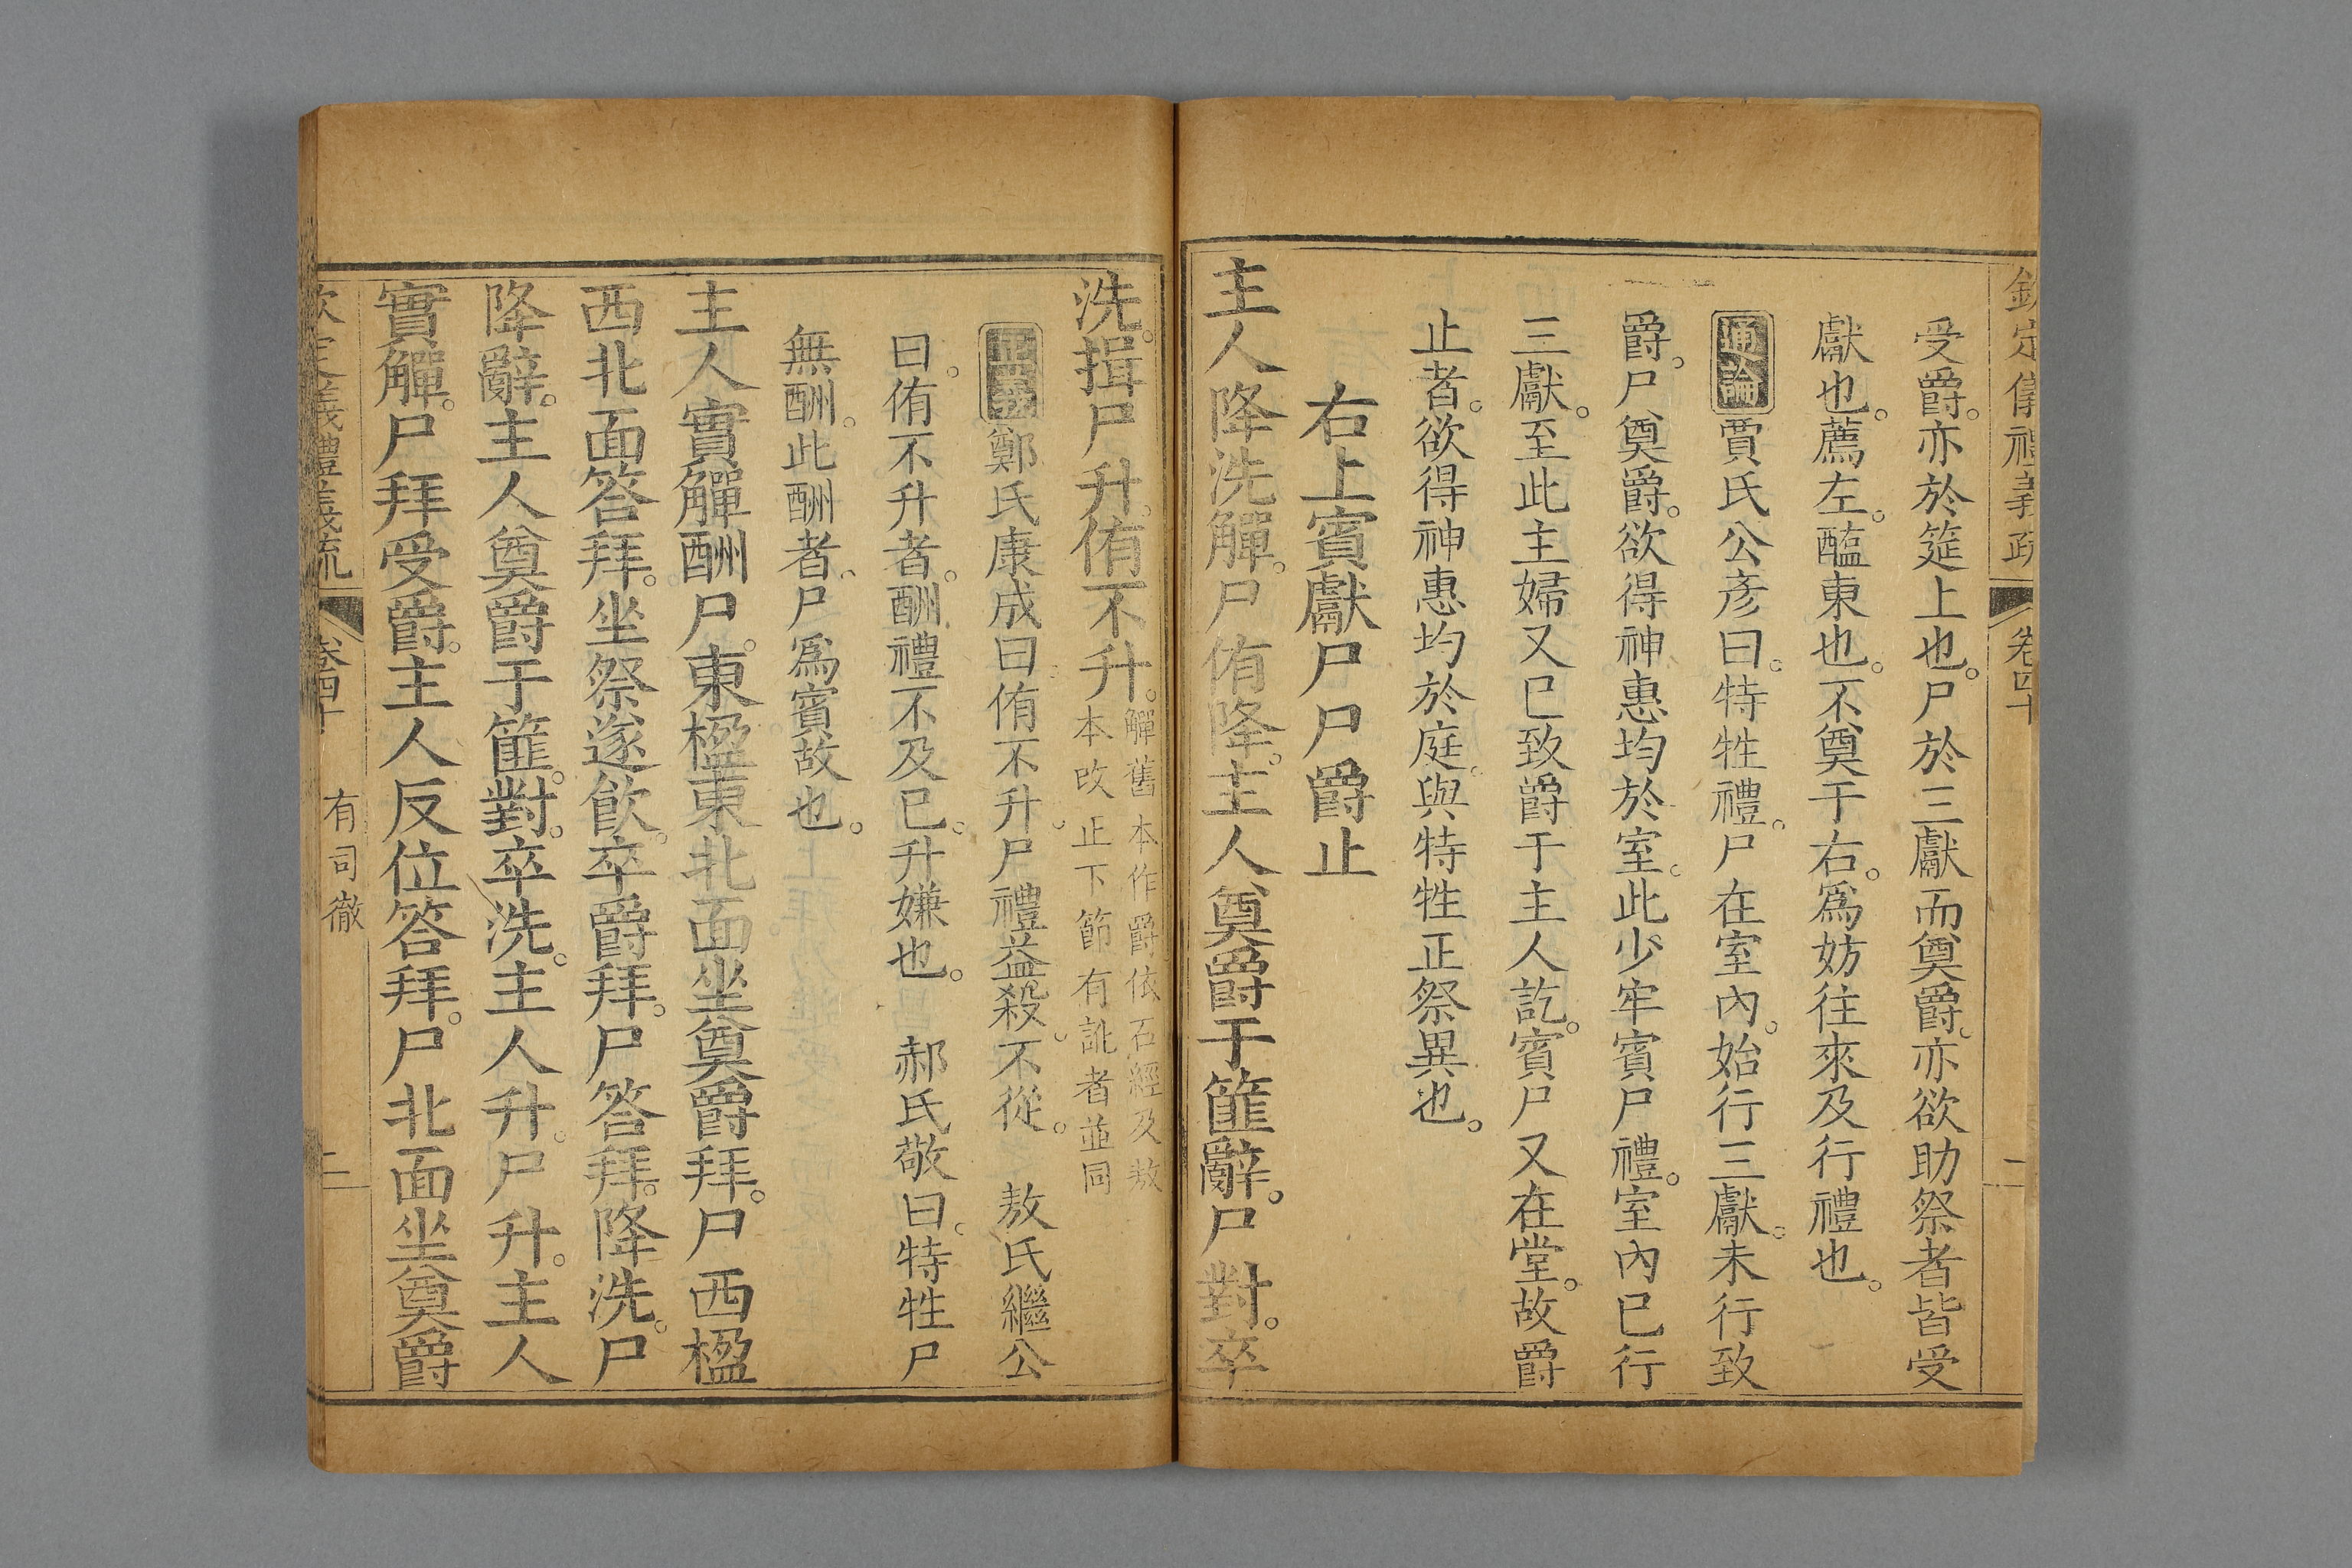 欽定儀禮義疏 卷四十 二
受爵。亦於筵上也。尸於三獻而奠爵。亦欲助祭者皆受
獻也。薦左。醢東也。不奠于右。爲妨往來及行禮也。
通論 賈氏公彦曰。特牲禮。尸在室內。始行三獻。未行致
爵。尸奠爵。欲得神惠均於室。此少牢賓尸禮。室內已行
三獻。至此主婦又已致爵于主人訖。賓尸又在堂。故爵
止者。欲得神惠均於庭。與特牲正祭異也。
右上賓獻尸尸爵止
主人降洗觶。尸侑降。主人奠爵于篚辭。尸對。卒
洗。揖尸升。侑不升。觶舊本作爵依石經及敖
本改正下節有訛者並同
正義 鄭氏康成曰。侑不升。尸禮益殺。不從。 敖氏繼公
曰。侑不升者。酬禮不及已。升嫌也。 郝氏敬曰。特牲尸
無酬。此酬者。尸爲賓故也。
主人實觶酬尸。東楹東北面坐奠爵拜。尸西楹
西北面答拜。坐祭遂飮。卒爵拜。尸答拜。降洗。尸
降辭。主人奠爵于篚。對。卒洗。主人升。尸升。主人
實觶。尸拜受爵。主人反位答拜。尸北面坐奠爵
欽定義禮義疏 卷四十 有司徹 二